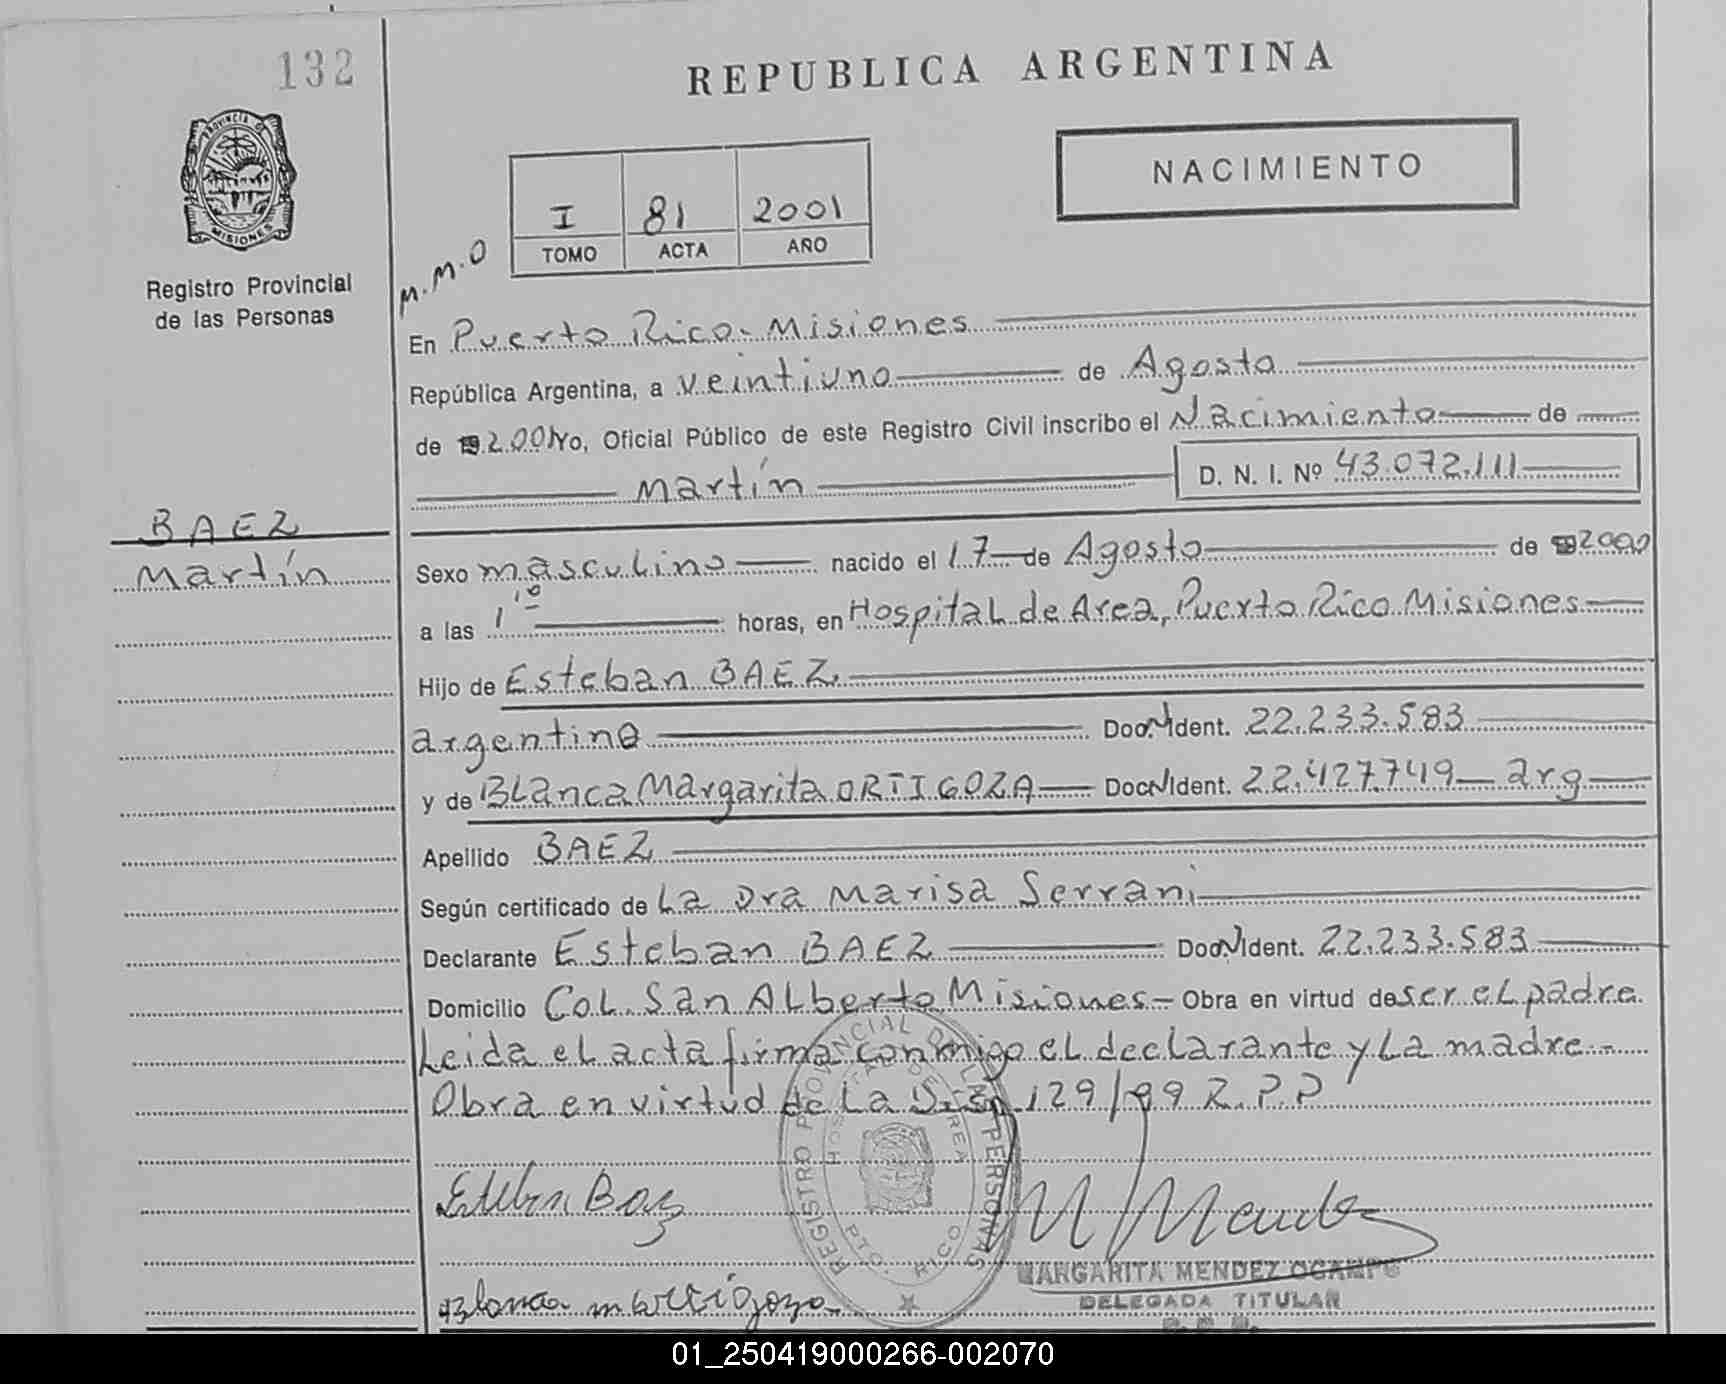 132
REPUBLICA ARGENTINA
PROVINCIA DE
MISIONES
Registro Provincial
de las Personas
I 81 2001
TOMO ACTA AÑO
NACIMIENTO
M.M.O
En Puerto Rico-Misiones
República Argentina, a veintiuno de Agosto
de 2001 Yo, Oficial Público de este Registro Civil inscribo el Nacimiento de
Martín D. N. I. Nº 43.072.111
BAEZ
Martín
Sexo masculino nacido el 17 de Agosto de 2000
a las 1'10 horas, en Hospital de Area, Puerto Rico Misiones
Hijo de Esteban BAEZ
argentino Doc. Ident. 22.233.583
y de Blanca Margarita ORTIGOZA Doc. Ident. 22.427.749 arg
Apellido BAEZ
Según certificado de La Dra Marisa Serrani
Declarante Esteban BAEZ Doc. Ident. 22.233.583
Domicilio Col. San Alberto Misiones - Obra en virtud de ser el padre
Leida el acta firma conmigo el declarante y La madre.-
Obra en virtud de La Disp 129/99 R.P.P
REGISTRO PROVINCIAL DE LAS PERSONAS
HOSPITAL DE AREA
PTO. RICO
Esteban Baez
MARGARITA MENDEZ OCAMPO
DELEGADA TITULAR
01_250419000266-002070